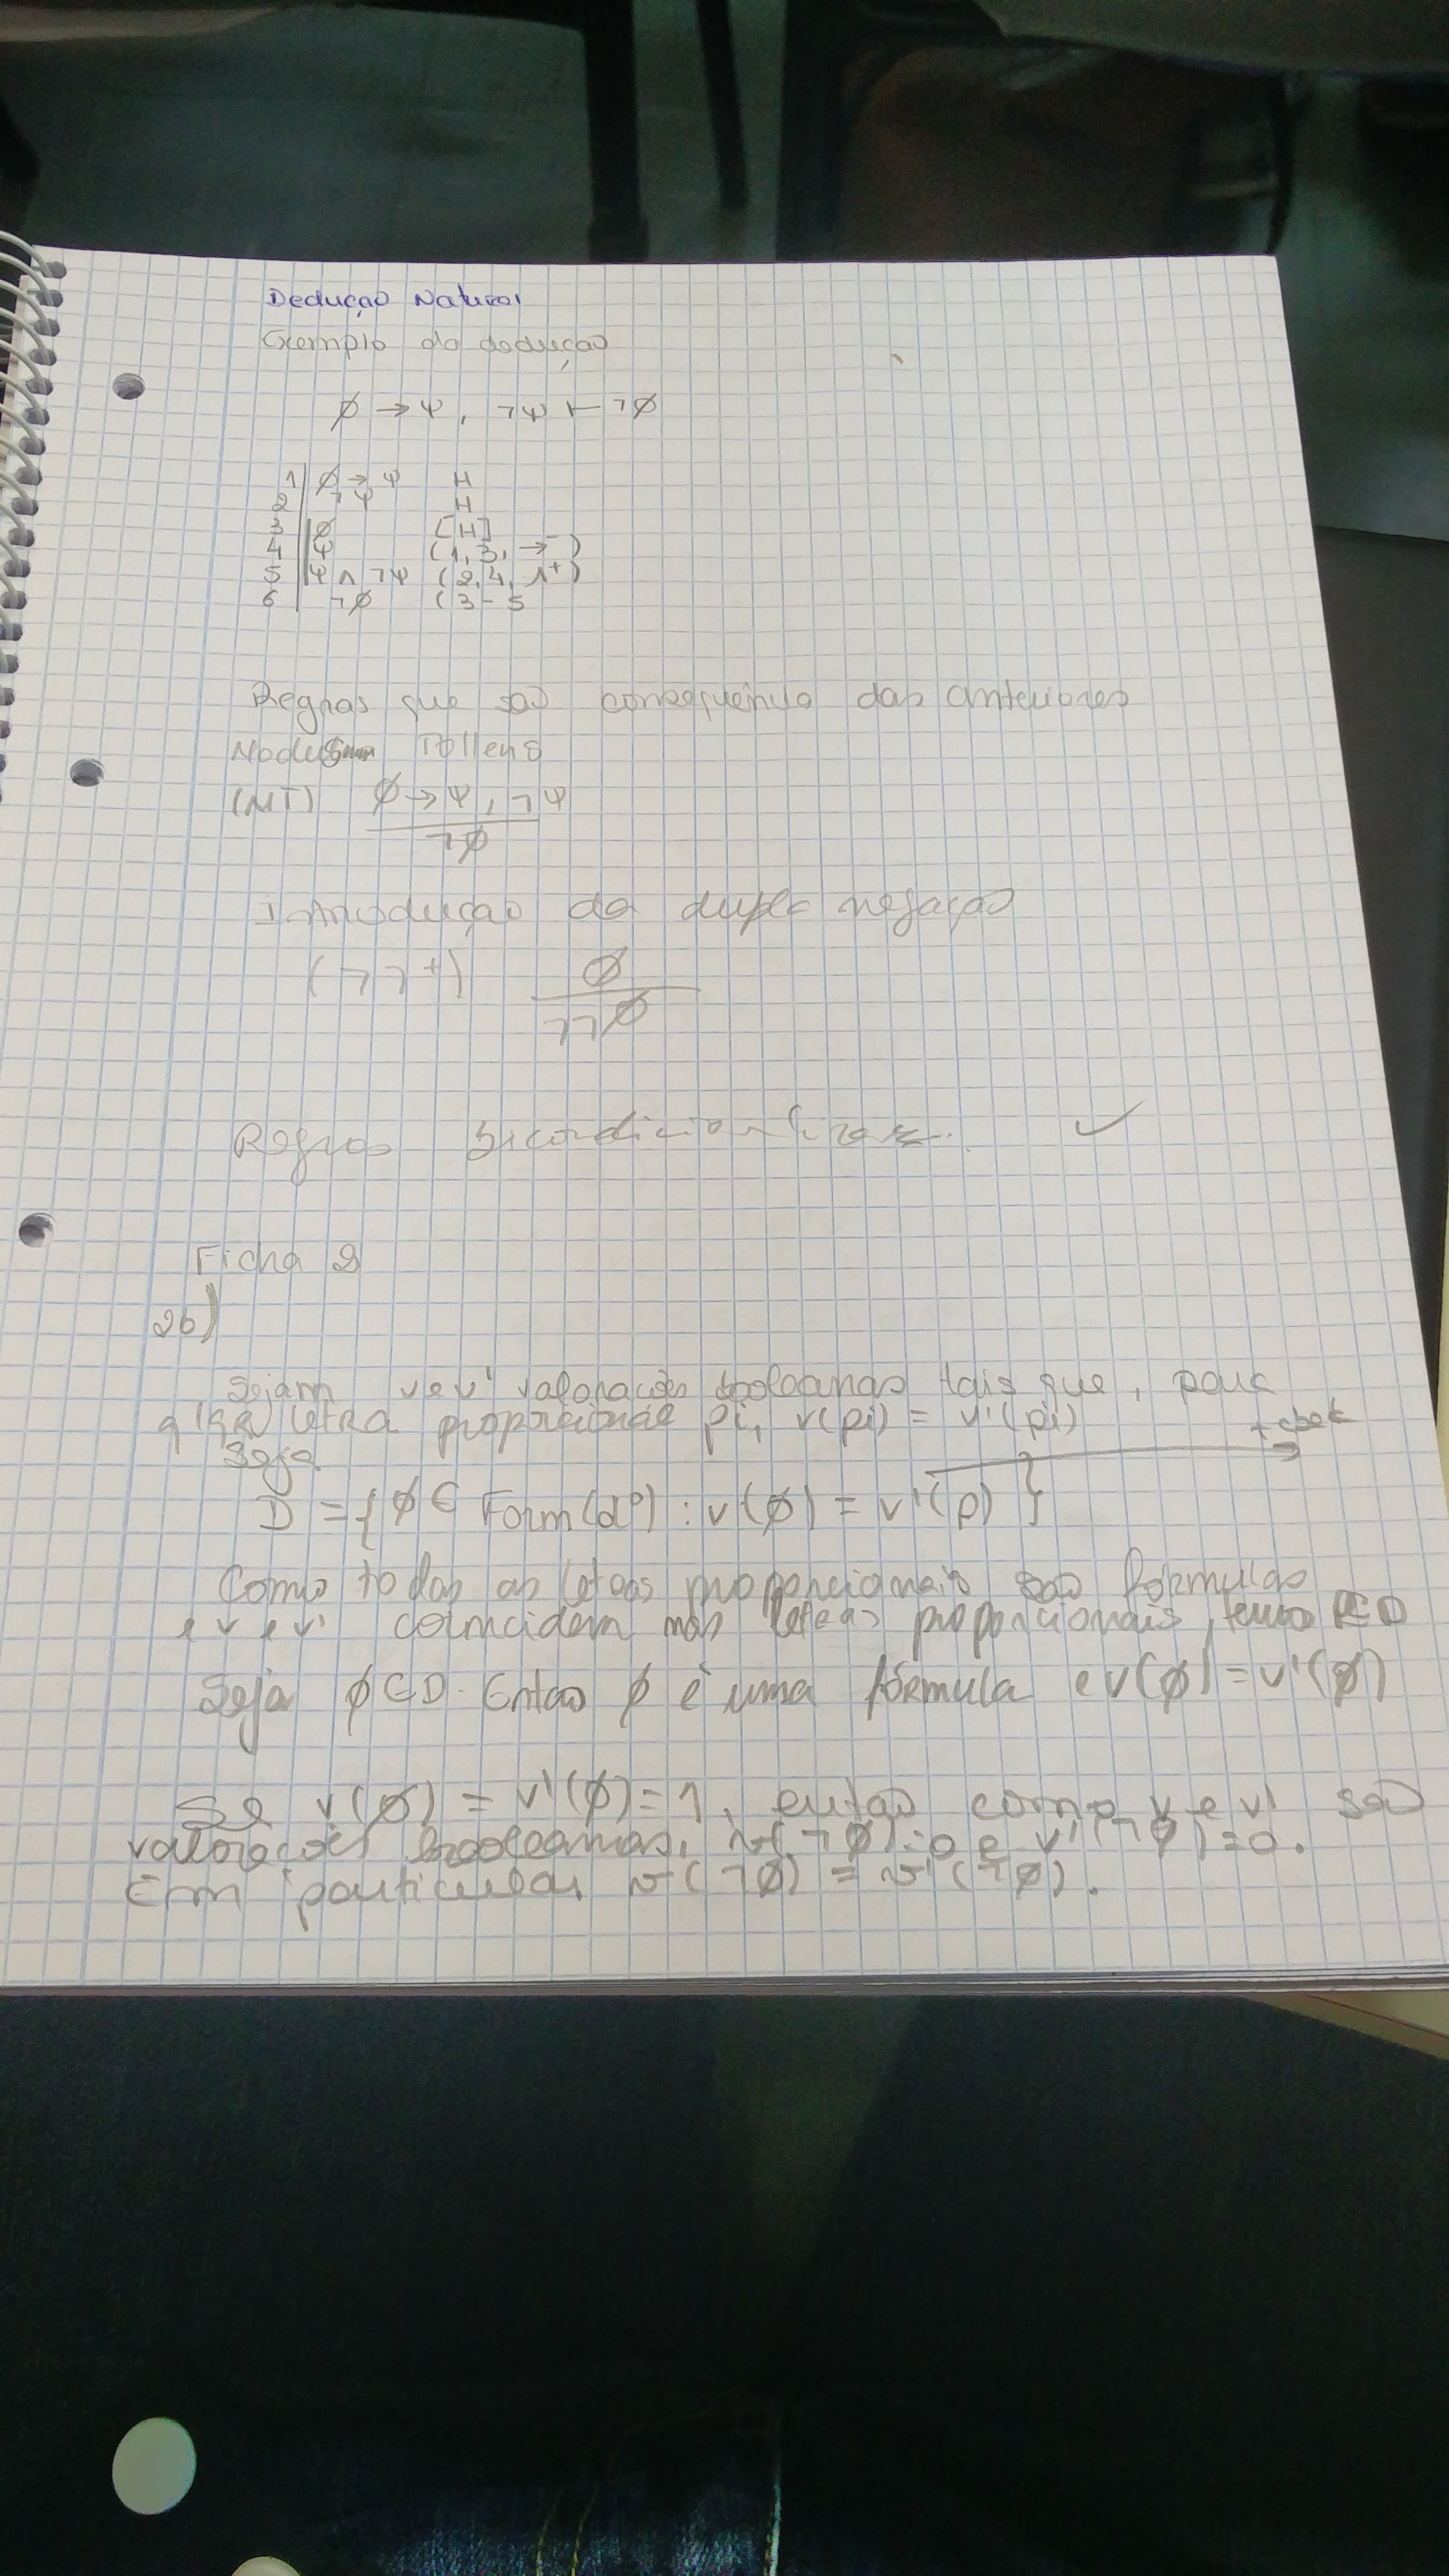 Dedução Natural
Exemplo da dedução
∅ → ψ , ¬ψ ⊢ ¬∅
1 ∅ → ψ H
2 ¬ψ H
3 ∅ [H]
4 ψ (1, 3, →⁻)
5 ψ ∧ ¬ψ (2, 4, ∧⁺)
6 ¬∅ (3 - 5
Regras que são consequência das anteriores
Modus Tollens
(MT) ∅ → ψ , ¬ψ
¬∅
Introdução da dupla negação
(¬¬⁺) ∅
¬¬∅
Regras ✓
Ficha 2
2b)
Sejam v e v' valorações booleanas tais que, para
letra proporcional pi, v(pi) = v'(pi)
Seja
D = { ∅ ∈ Form(LP) : v(∅) = v'(p) }
Como todas as letras proporcionais são fórmulas
e v e v' coincidem nas letras proporcionais,
Seja ∅ ∈ D. Então ∅ é uma fórmula e v(∅) = v'(∅)
Se v(∅) = v'(∅) = 1, então como v e v' são
valorações booleanas, v(¬∅) = 0 e v'(¬∅) = 0.
Em particular v(¬∅) = v'(¬∅).